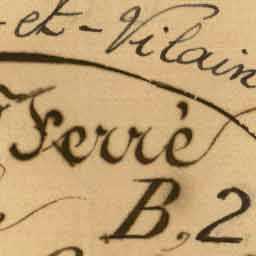 -et-Vilain
Ferrè
B, 2